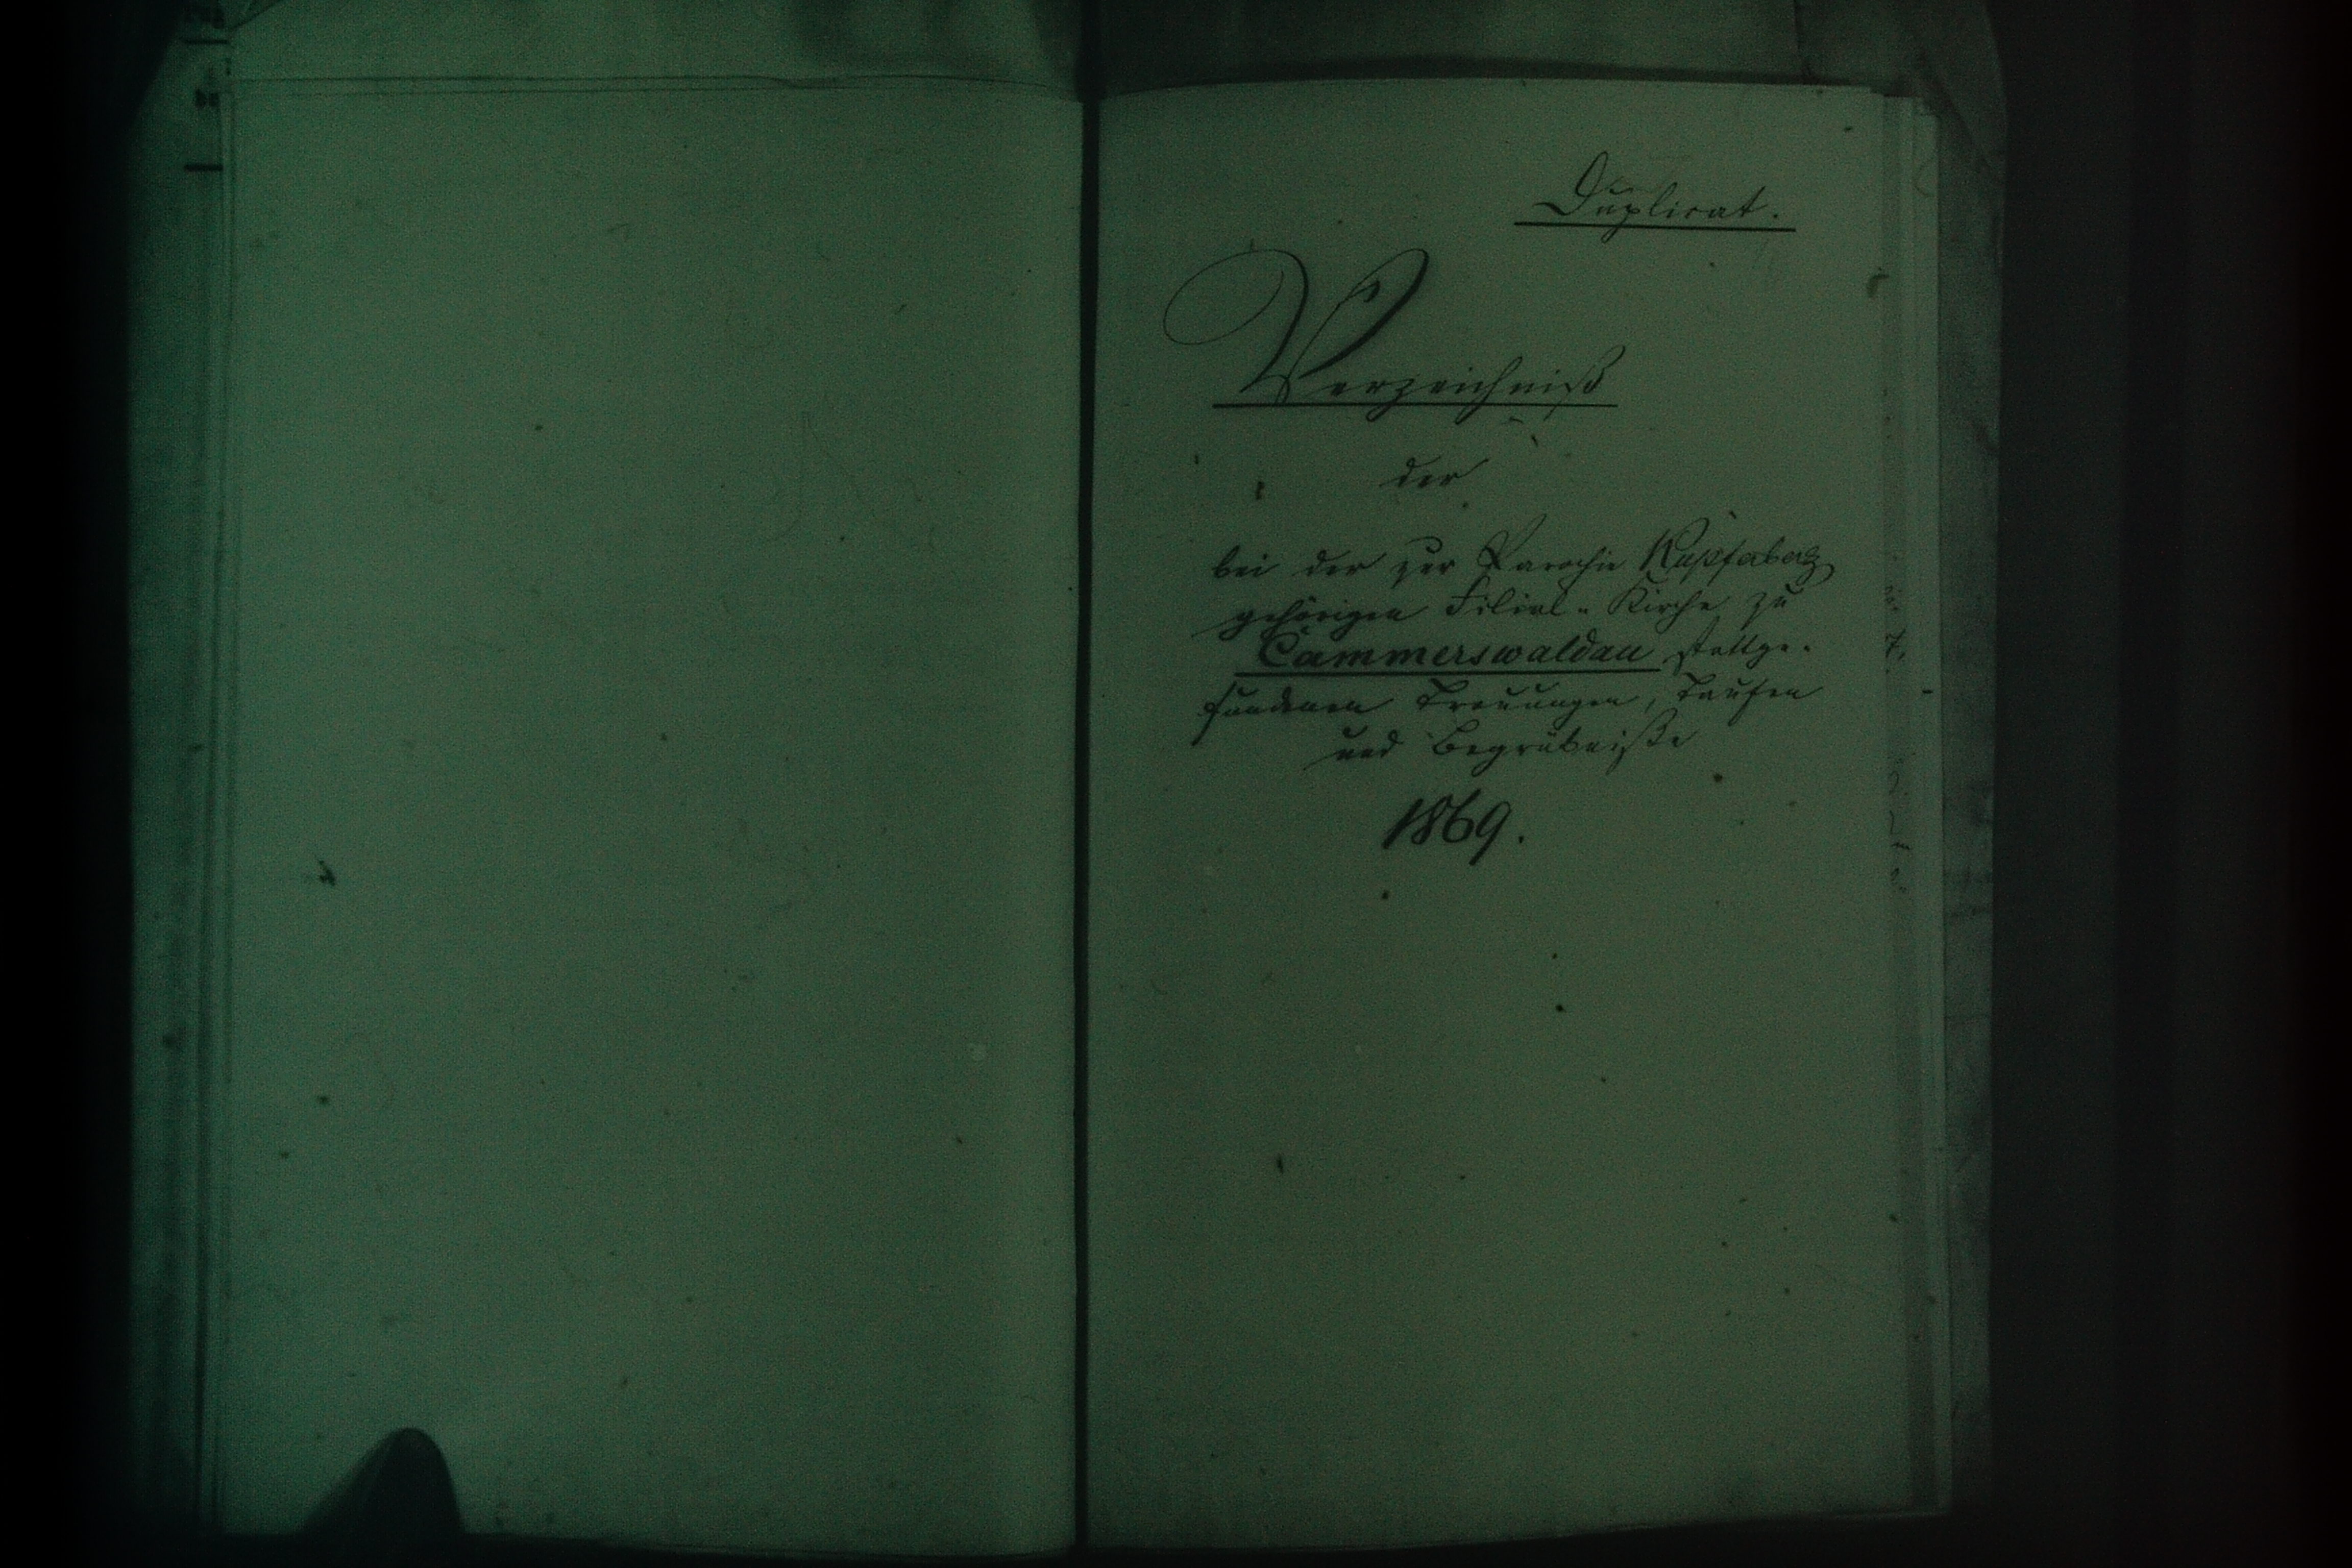 Duplicat.
Verzeichniß
der
bei der zur Parochie Kupferberg
gehörigen Filial-Kirche zu
Cammerswaldau stattge-
fundenen Trauungen, Taufen
und Begräbniße
1869.